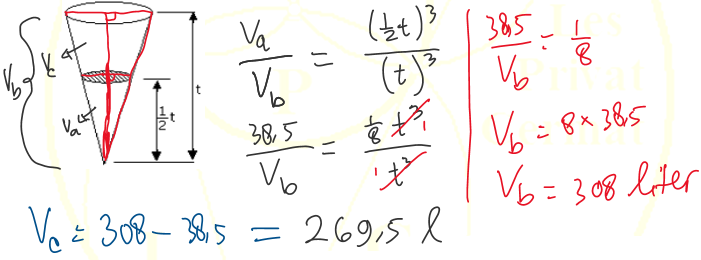 V_b
V_c
V_a
t
1/2 t
V_a / V_b = (1/2 t)^3 / (t)^3
38,5 / V_b = 1/8 t^3 1 / 1 t^3
38,5 / V_b = 1/8
V_b = 8 × 38,5
V_b = 308 liter
V_c = 308 - 38,5 = 269,5 l